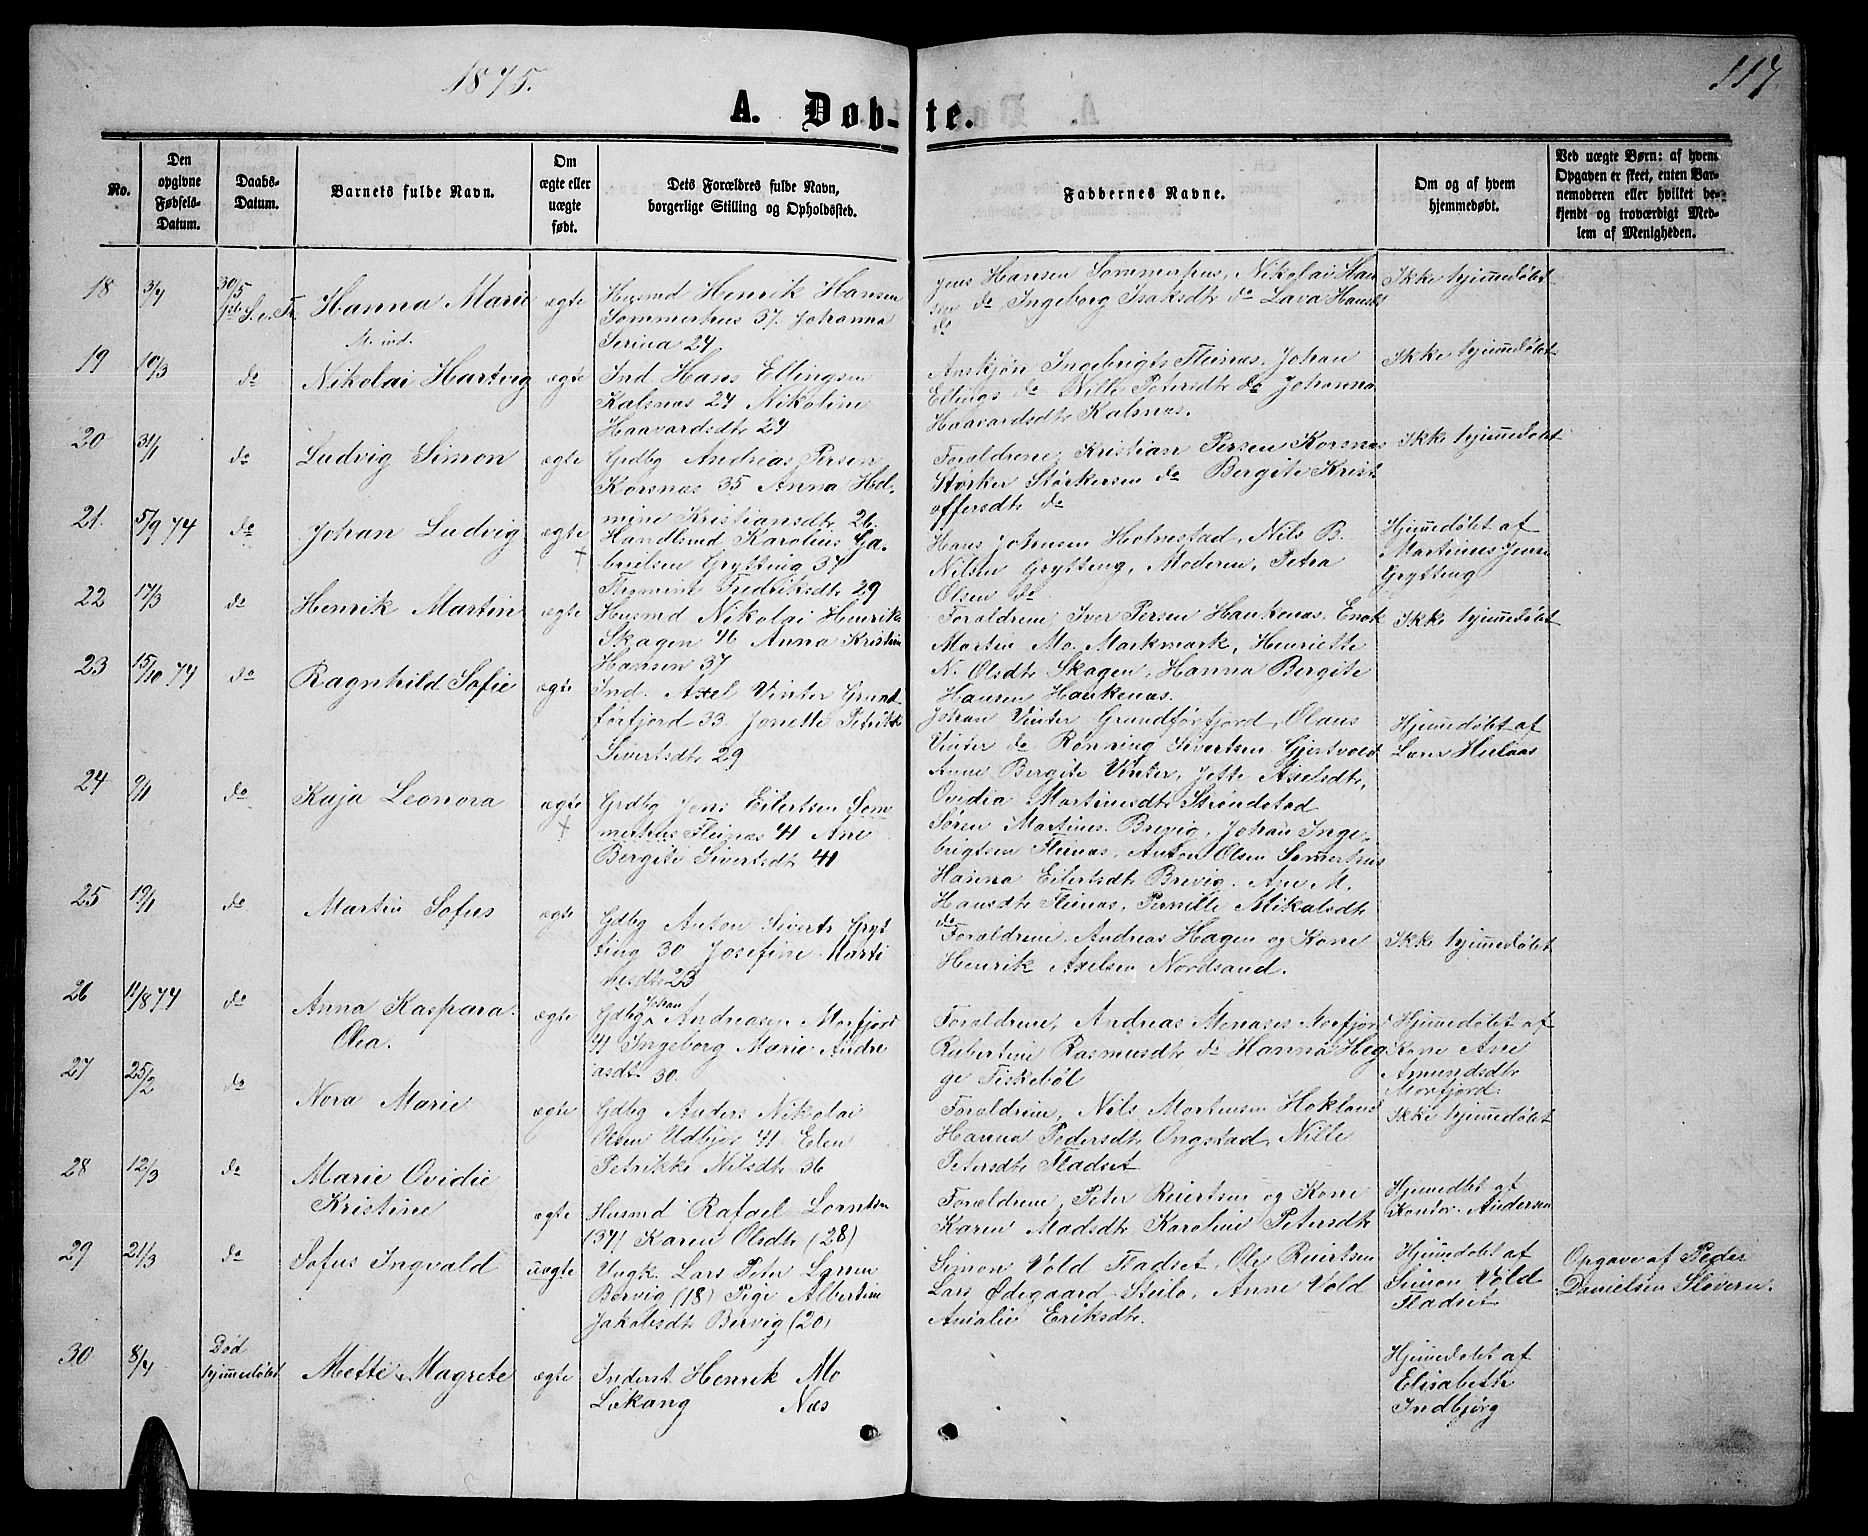 1875.
117
A. Døb-te.
No.
Den opgivne Fødsels-Datum.
Daabs-Datum.
Barnets fulde Navn.
Om ægte eller uægte født.
Dets Forældres fulde Navn, borgerlige Stilling og Opholdssted.
Faddernes Navne.
Om og af hvem hjemmedøbt.
Ved uægte Børn: af hvem Opgaven er skeet, enten Barnemoderen eller hvilket bekjendt og troværdigt Medlem af Menigheden.
18 3/4 30/5 Hanna Marie ægte
Husmd Henrik Hansen
Sommerhus 37. Johanna
Serina 24
Jens Hansen Sommerhus, Nikolai Han
sen do Ingeborg Isaksdtr do Lava Hansdtr
do
Ikke hjemmedøbt
19 10/3 do Nikolai Hartvig ægte
Ind Hans Ellingsen
Kalsnæs 24 Nikoline
Haavardsdtr 24
Anskjøn Ingebrigts Fleinæs, Johan
Ellings do Nille Petersdtr do Johanna
Haavardsdtr Kalsnæs.
Ikke hjemmedøbt
20 31/1 do Ludvig Simon ægte
Grdbg Andreas Persen
Korsnæs 35 Anna Hel-
mine Kristiansdtr 26.
Forældrene, Kristian Persen Korsnæs
Størker Størkersen do Bergite Krist
offersdtr do
Ikke hjemmedøbt
21. 5/9 74 do Johan Ludvig ægte
+
Handlsmd Karolius Ga-
brielsen Grytting 37
Thomine Fredriksdtr 29
Hans Johnsen Holmstad, Nils B.
Nilsen Grytting, Moderen, Petra
Olsen do
Hjemmedøbt af
Martinus Jensen
Grytting
22 17/3 do Henrik Martin ægte
Husmd Nikolai Henriks
Skagen 41 Anna Kristine
Hansen 37
Forældrene Iver Persen Haukenæs, Enok
Martin Mo. Markmark, Henriette
N. Olsdtr Skagen, Hanna Bergite
Hansen Haukenæs.
Ikke hjemmedøbt
23 15/10 74 do Ragnhild Sofie ægte
Ind. Axel Vinter Grund
førfjord 33. Jonette Petrikke
Sivertsdtr 29
Johan Vinter Grundførfjord, Olaus
Vinter do Rønning Sivertsen Gjertvold
Anne Bergite Vinter, Jette Axelsdtr,
Ovidia Martinusdtr Strøndstad
Hjemmedøbt af
24 9/1 do Kaja Leonora ægte
+
Grdbg Jens Eilertsen Som
merhus Fleinæs 41 Ane
Bergite Sivertsdtr 41
Søren Martinus. Brevig, Johan Inge-
brigtsen Fleinæs, Anton Olsen Sommerhus
Hanna Eilertsdtr Brevig. Ane M.
Hansdtr Fleinæs, Pernille Mikalsdtr
do
25 19/1 do Martin Sofus ægte
Gdbg Anton Siverts Gryt
ting 30 Josefine Marti
nesdtr 23
Forældrene, Andreas Hagen og Kone
Henrik Axelsen Nordsand.
Ikke hjemmedøbt
26 12/8 74 do Anna Kaspara
Olea.
ægte
Gdbg Johan Andreasen Morfjord
41 Ingeborg Marie Andre
asdtr 30.
Forældrene, Andreas Menases Morfjord
Rubertine Rasmusdtr do Hanna Heg
ge Fiskebøl
Hjemmedøbt af
Kone Ane
Amundsdtr
Morfjord.
27 25/2 do Nora Marie ægte
Gdbg Anders Nikolai
Olsen Udbjør 41. Elen
Petrikke Nilsdtr 36
Forældrene, Nils Mortensen Hokland
Hanna Pedersdtr Ongstad, Nille
Petersdtr Fladset
Ikke hjemmedøbt
28 12/3 do Marie Ovidie
Kristine
ægte
Husmd Rafael Lorntsen
(37) Karen Olsdtr (28)
Forældrene, Peter Reiertsen og Kone
Karen Madsdtr Karoline Petersdtr
Hjemmedbt af
Andersen
29 21/3 do Sofus Ingvald uægte
Ungk. Lars Peter Søren
Bervig (18) Pige Albertine
Jakobsdtr Bervig (20)
Simon Vold Fladset, Ole Reiertsen
Lars Ødegaard Steilo, Anne Vold
Amalie Eriksdtr.
Hjemmedøbt af
Simon Vold
Fladset
Opgave af Peder
Danielsen Sloveren.
30 8/4 Død
hjemmedøbt
Mette Magrete ægte
Inderst Henrik Mo
Lökang Næs
Hjemmedøbt af
Elisabeth
Indbjørg